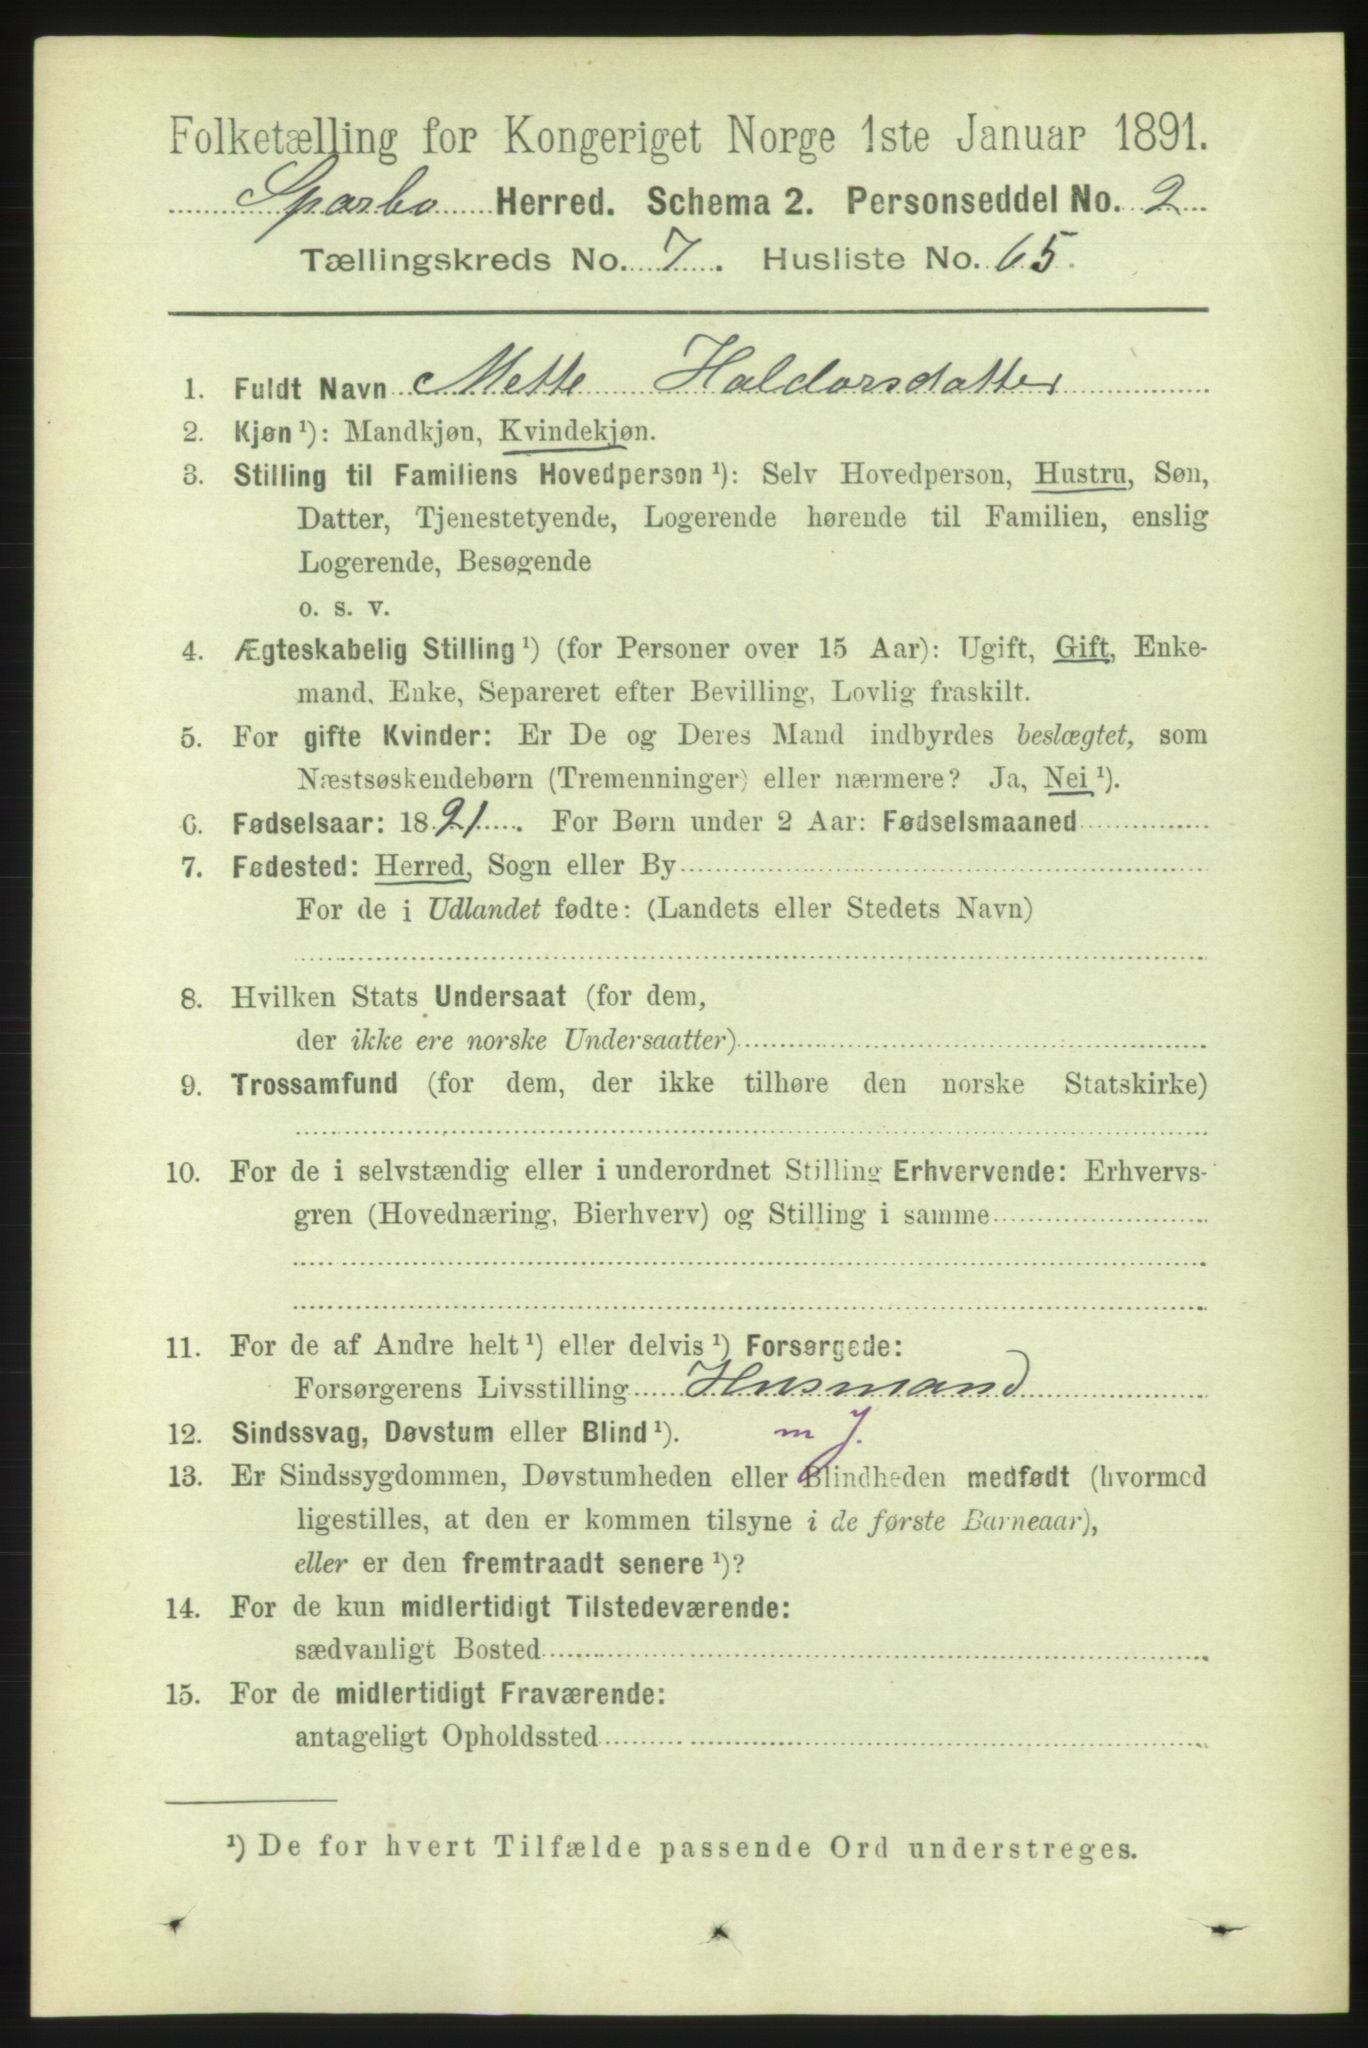 Folketælling for Kongeriget Norge 1ste Januar 1891.
Sparbo Herred. Schema 2. Personseddel No. 2
Tællingskreds No. 7. Husliste No. 65.
1. Fuldt Navn Mette Haldorsdatter
2. Kjøn ¹): Mandkjøn, Kvindekjøn.
3. Stilling til Familiens Hovedperson ¹): Selv Hovedperson, Hustru, Søn,
Datter, Tjenestetyende, Logerende hørende til Familien, enslig
Logerende, Besøgende
o. s. v.
4. Ægteskabelig Stilling ¹) (for Personer over 15 Aar): Ugift, Gift, Enke-
mand, Enke, Separeret efter Bevilling, Lovlig fraskilt.
5. For gifte Kvinder: Er De og Deres Mand indbyrdes beslægtet, som
Næstsøskendebørn (Tremenninger) eller nærmere? Ja, Nei ¹).
6. Fødselsaar: 1821. For Børn under 2 Aar: Fødselsmaaned
7. Fødested: Herred, Sogn eller By
For de i Udlandet fødte: (Landets eller Stedets Navn)
8. Hvilken Stats Undersaat (for dem,
der ikke ere norske Undersaatter)
9. Trossamfund (for dem, der ikke tilhøre den norske Statskirke)
10. For de i selvstændig eller i underordnet Stilling Erhvervende: Erhvervs-
gren (Hovednæring, Bierhverv) og Stilling i samme
11. For de af Andre helt ¹) eller delvis ¹) Forsørgede:
Forsørgerens Livsstilling Husmand
12. Sindssvag, Døvstum eller Blind ¹). m J.
13. Er Sindssygdommen, Døvstumheden eller Blindheden medfødt (hvormed
ligestilles, at den er kommen tilsyne i de første Barneaar),
eller er den fremtraadt senere ¹)?
14. For de kun midlertidigt Tilstedeværende:
sædvanligt Bosted
15. For de midlertidigt Fraværende:
antageligt Opholdssted
¹) De for hvert Tilfælde passende Ord understreges.